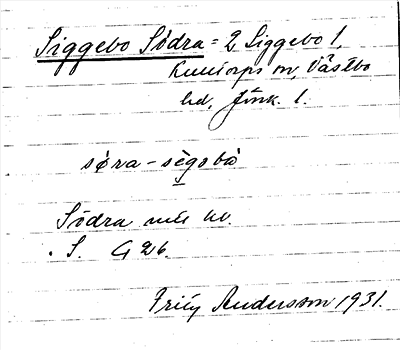 Siggebo Södra = 2 Siggebo 1,
Kulltorps sn, Västbo
hd, Jönk. l.
søra-sègobò
Södra
. S. G 26.
Andersson 1931.